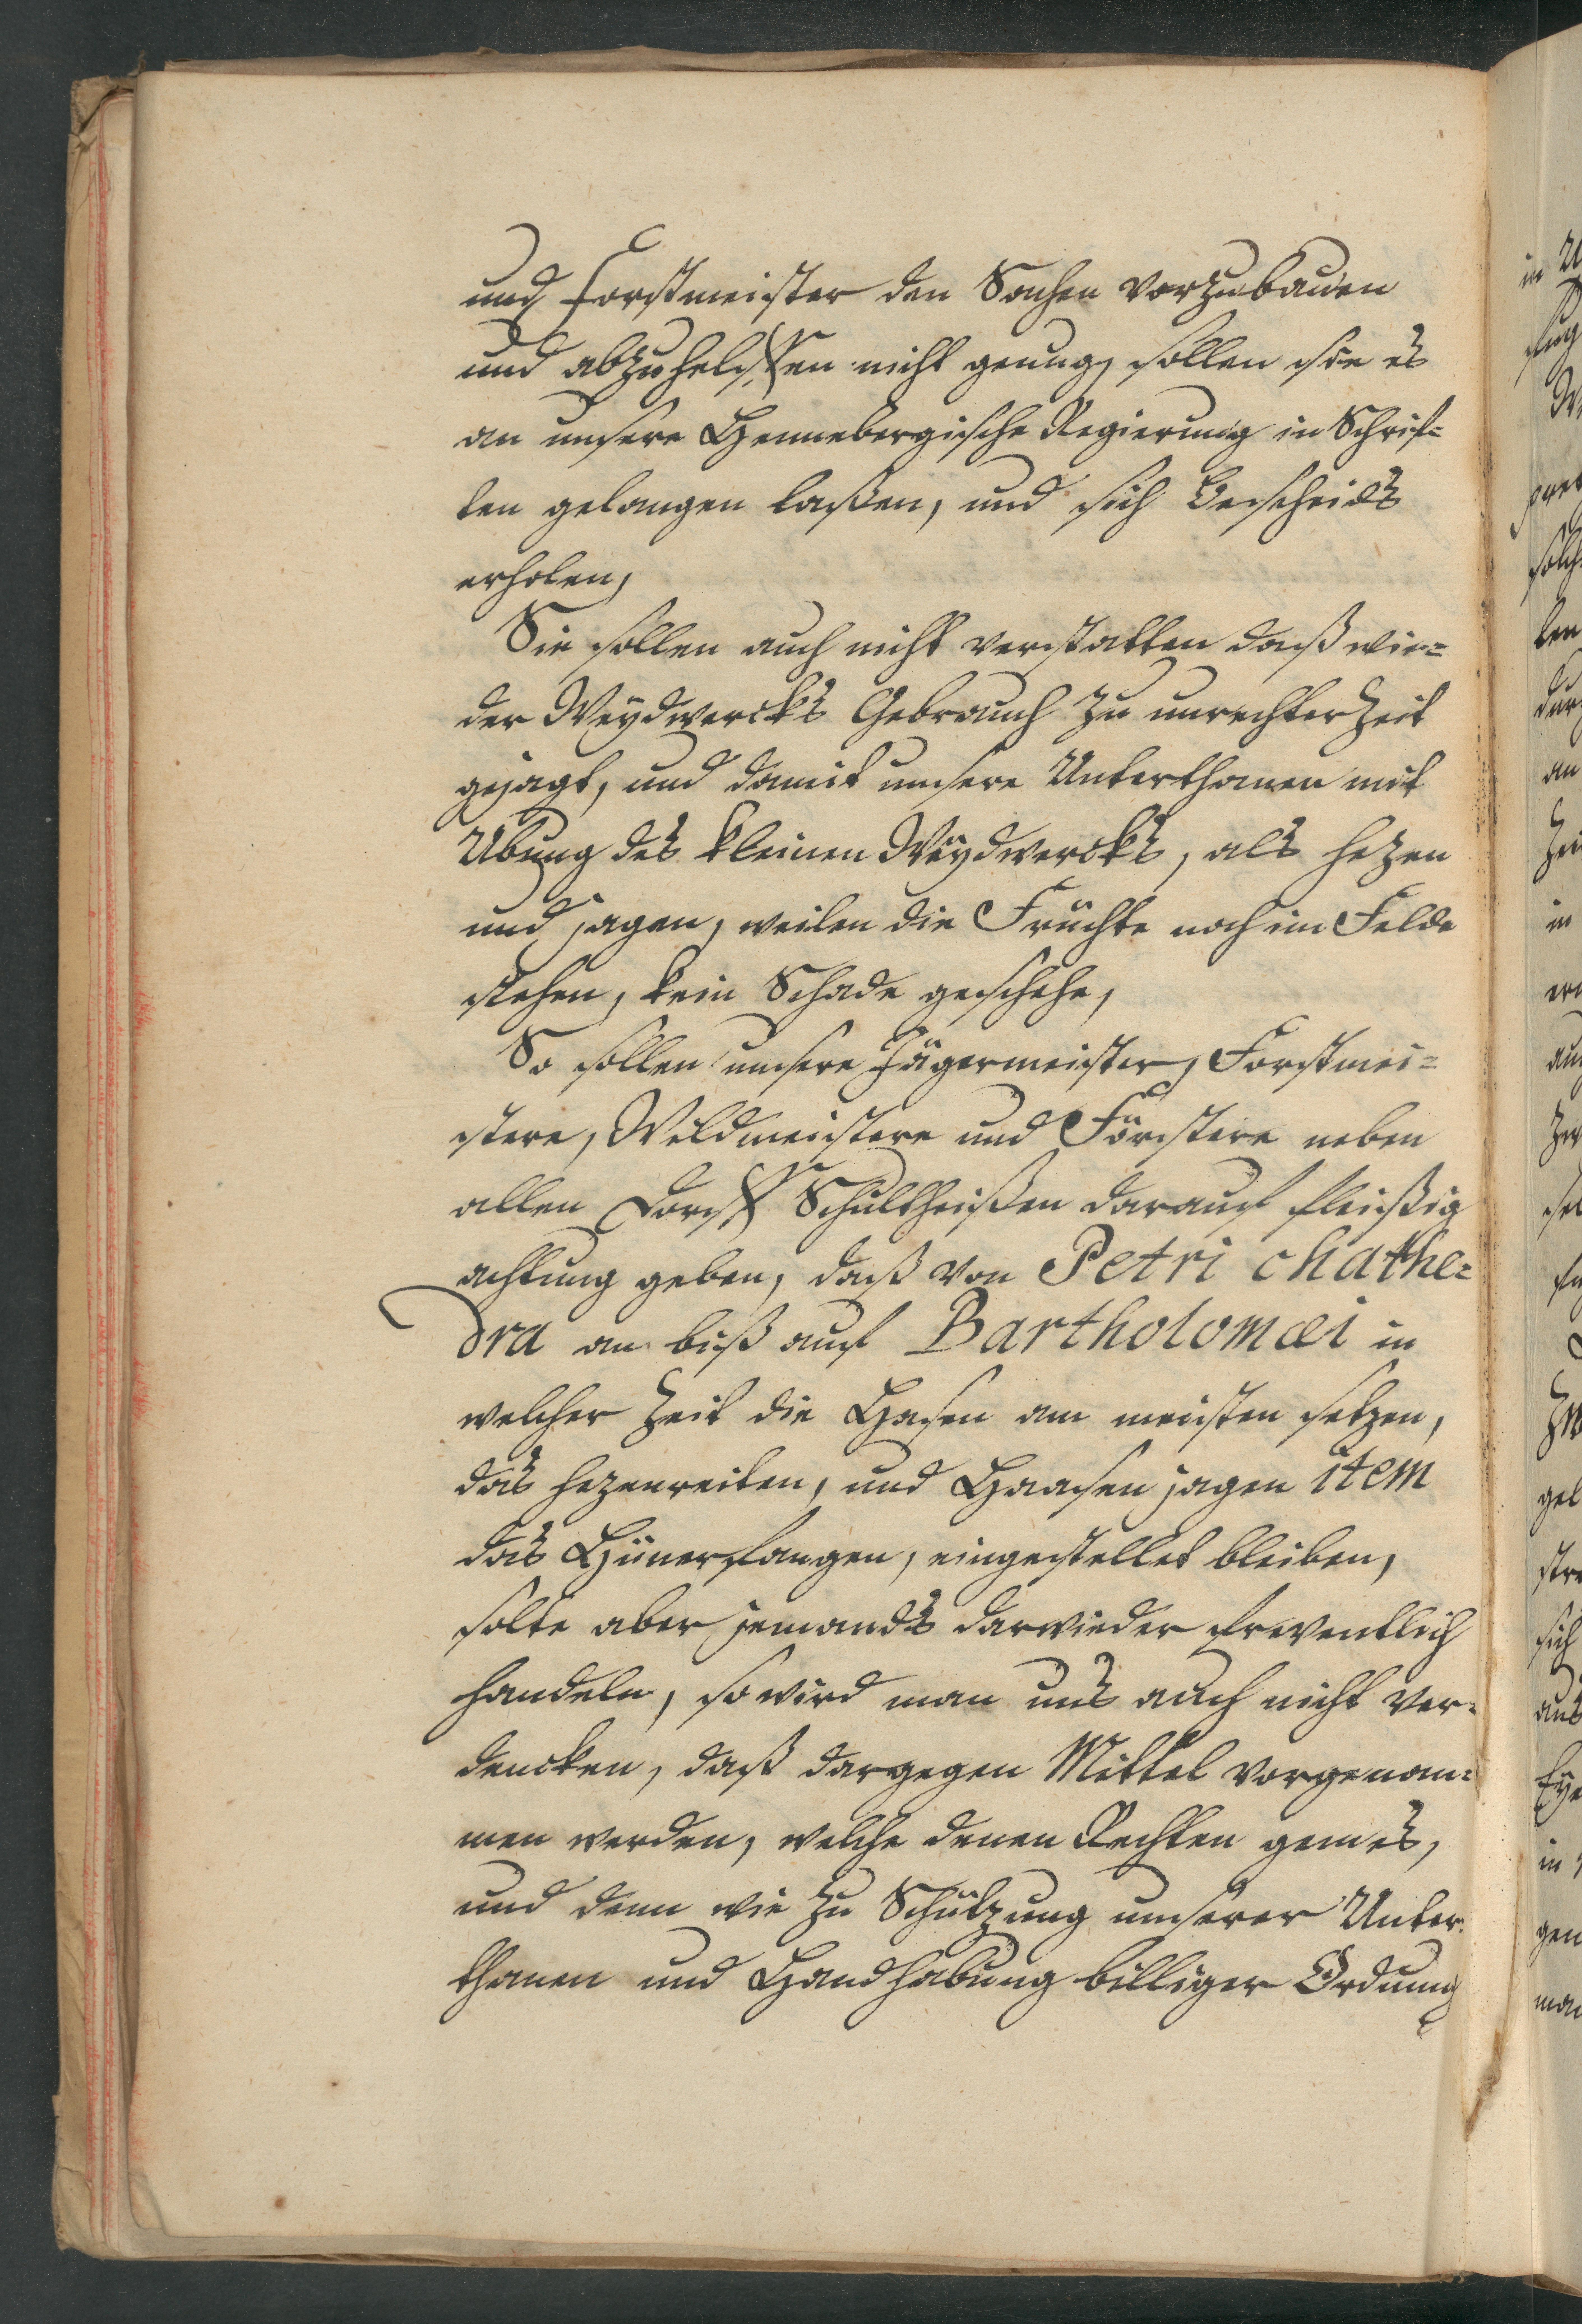 und Forstmeister den Sachen vorzubauen
und abzuhelffen nicht genung, sollen sie es
an unsere Hennebergische Regierung in Schrif=
ten gelangen laßen, und sich Bescheids
erholen,
Sie sollen auch nicht verstatten daß wie=
der Weydwercks Gebrauch zu unrechter Zeit
gejagt, und damit unsere Unterthanen mit
Übung des kleinen Weydwercks, als hezen
und jagen, weilen die Früchte noch im Felde
stehen, kein Schade geschehe,
So sollen unsere Jägermeister, Forstmei=
stere, Wildmeistere und Förstere neben
allen Dorff Schultheißen darauf fleißig
achtung geben, daß von Petri chathe=
dra an biß auf Bartholomæi in
welcher Zeit die Hasen am meisten setzen,
das hezenreiten, und Haasen jagen item
das Hünerfangen, eingestellet bleiben,
solte aber jemands darwieder freventlich
handeln, so wird man uns auch nicht ver=
dencken, daß dargegen Mittel vorgenom=
men werden, welche denen Rechten gemes,
und denn wie zu Schützung unserer Unter=
thanen und Handhabung billiger Ordnung